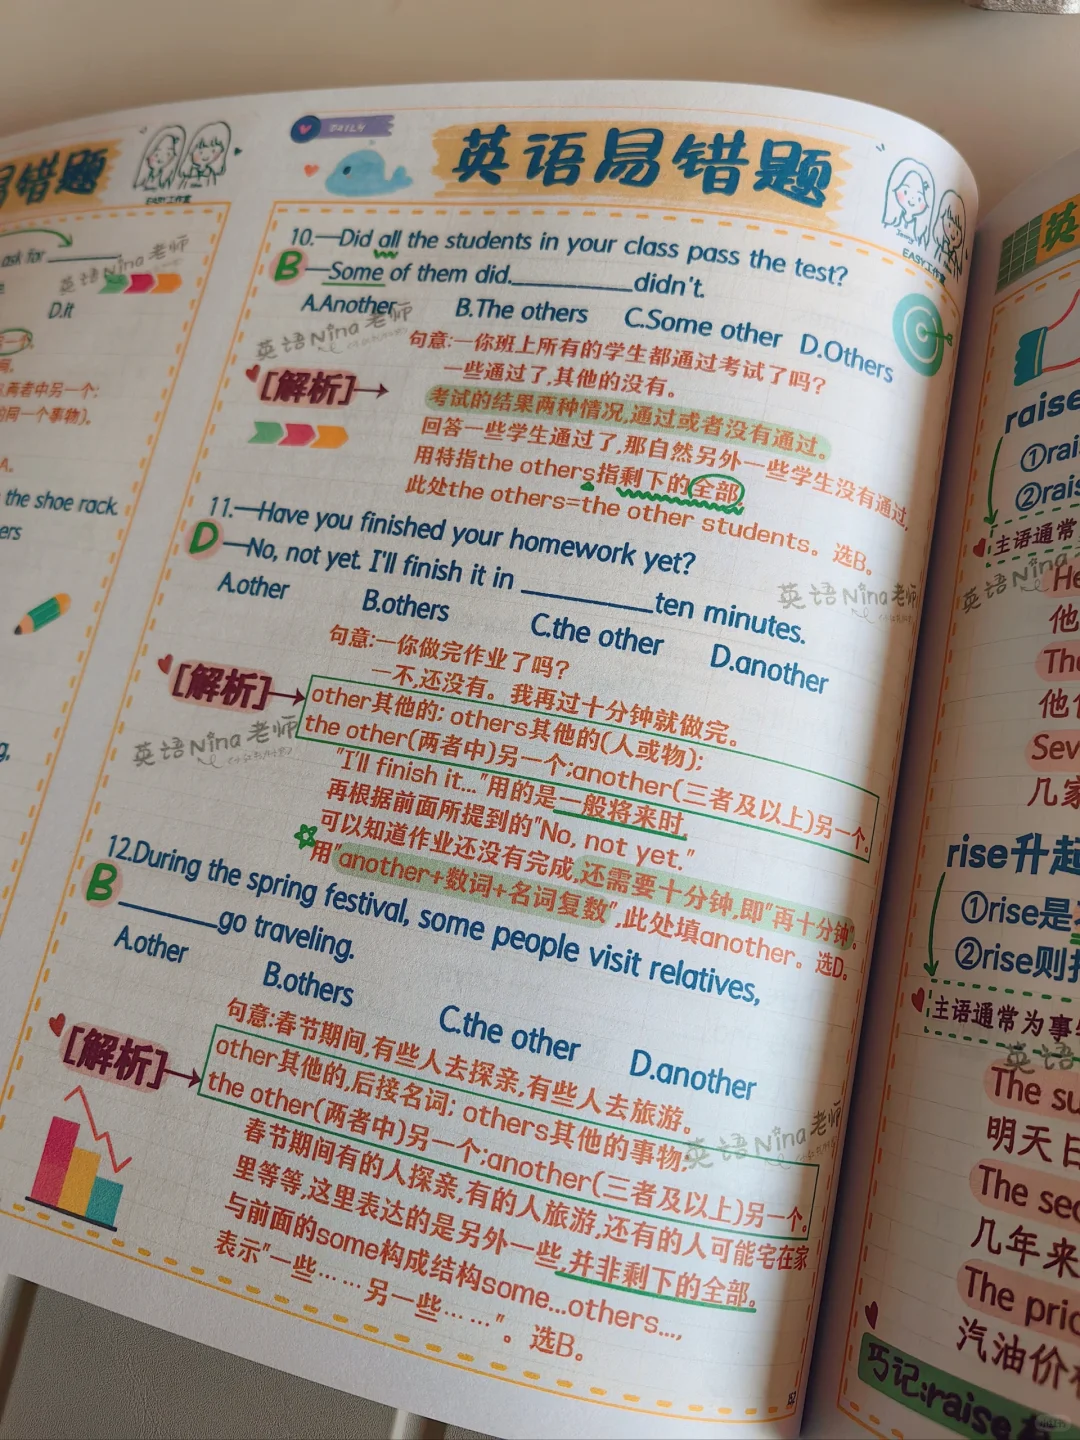 易错题
EASY工作室
ask for
英语Nina老师
D.it
两者中另一个;
的同一个事物)。
A.
the shoe rack.
ers
g,
DAILY
英语易错题
EASY工作室
10.—Did all the students in your class pass the test?
B —Some of them did.__________didn't.
A.Another B.The others C.Some other D.Others
英语Nina老师
句意:—你班上所有的学生都通过考试了吗?
一些通过了,其他的没有。
[解析]→
考试的结果两种情况,通过或者没有通过。
回答一些学生通过了,那自然另外一些学生没有通过,
用特指the others指剩下的全部,
此处the others=the other students。选B。
11.—Have you finished your homework yet?
D —No, not yet. I'll finish it in __________ten minutes.
英语Nina老师
A.other B.others C.the other D.another
句意:—你做完作业了吗?
—不,还没有。我再过十分钟就做完。
[解析]→
other其他的; others其他的(人或物);
the other(两者中)另一个;another(三者及以上)另一个。
英语Nina老师
"I'll finish it..."用的是一般将来时,
再根据前面所提到的"No, not yet."
可以知道作业还没有完成,还需要十分钟,即"再十分钟"。
用"another+数词+名词复数",此处填another。选D。
12.During the spring festival, some people visit relatives,
B ________go traveling.
A.other B.others C.the other D.another
句意:春节期间,有些人去探亲,有些人去旅游。
[解析]→
other其他的,后接名词; others其他的事物;
the other(两者中)另一个;another(三者及以上)另一个。
英语Nina老师
春节期间有的人探亲,有的人旅游,还有的人可能宅在家
里等等,这里表达的是另外一些,并非剩下的全部。
与前面的some构成结构some...others...,
表示"一些……另一些……"。选B。
英
raise
①rai
②rais
主语通常
英语Nina
He
他
The
他们
Sev
几家
rise升起
①rise是
②rise则
主语通常为事
英语
The su
明天日
The sec
几年来
The pric
汽油价
巧记:raise